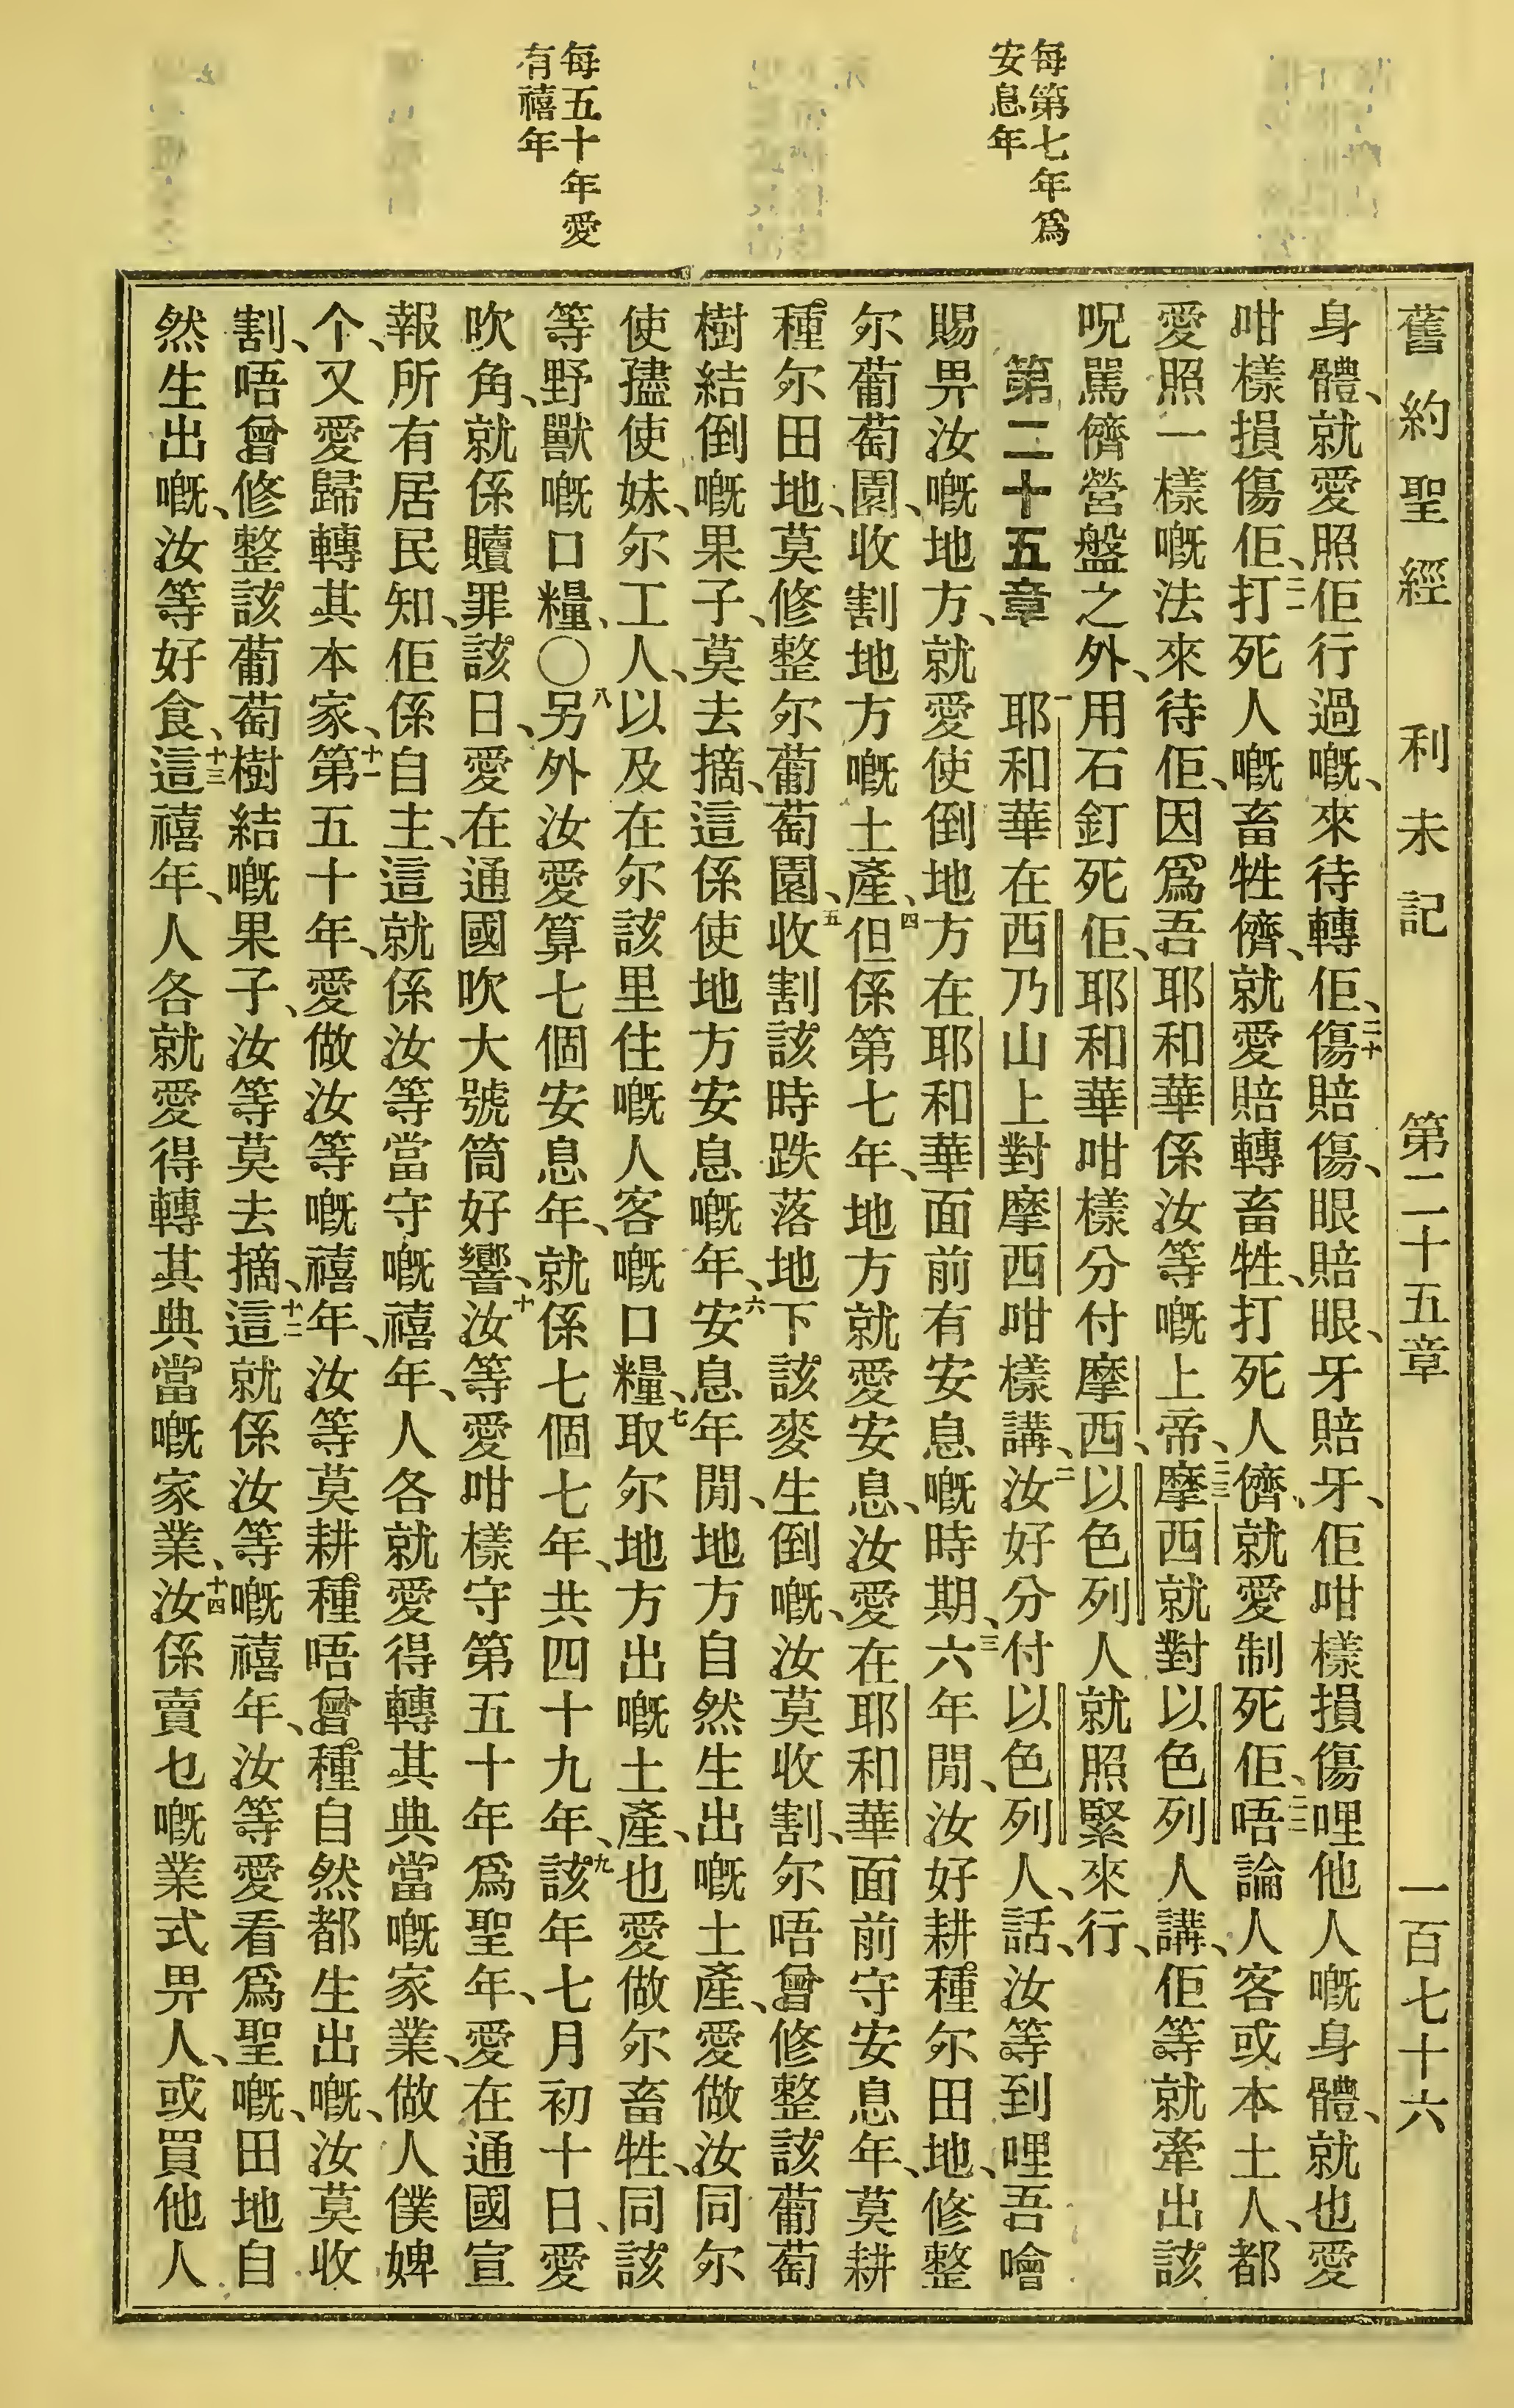 每第七年爲
安息年
每五十年愛
有禧年
舊約聖經 利未記 第二十五章 一百七十六
身體、就愛照佢行過嘅、來待轉佢、二十傷賠傷、眼賠眼、牙賠牙、佢咁樣損傷哩他人嘅身體、就也愛
咁樣損傷佢、二一打死人嘅畜牲儕、就愛賠轉畜牲、打死人儕、就愛制死佢、二二唔論人客或本土人、都
愛照一樣嘅法來待佢、因爲吾耶和華係汝等嘅上帝、二三摩西就對以色列人講、佢等就牽出該
呪駡儕營盤之外、用石釘死佢、耶和華咁樣分付摩西、以色列人就照緊來行、
第二十五章 一耶和華在西乃山上對摩西咁樣講、二汝好分付以色列人、話、汝等到哩吾噲
賜畀汝嘅地方、就愛使倒地方在耶和華面前有安息嘅時期、三六年閒、汝好耕種尔田地、修整
尔葡萄園、收割地方嘅土產、四但係第七年、地方就愛安息、汝愛在耶和華面前守安息年、莫耕
種尔田地、莫修整尔葡萄園、五收割該時跌落地下該麥生倒嘅、汝莫收割、尔唔曾修整該葡萄
樹結倒嘅果子、莫去摘、這係使地方安息嘅年、六安息年閒、地方自然生出嘅土產、愛做汝同尔
使孻使妹、尔工人、以及在尔該里住嘅人客嘅口糧、七取尔地方出嘅土產、也愛做尔畜牲、同該
等野獸嘅口糧、〇八另外汝愛算七個安息年、就係七個七年、共四十九年、九該年七月初十日、愛
吹角、就係贖罪該日、愛在通國吹大號筒好響、十汝等愛咁樣守第五十年爲聖年、愛在通國宣
報所有居民知、佢係自主、這就係汝等當守嘅禧年、人各就愛得轉其典當嘅家業、做人僕婢
个、又愛歸轉其本家、十一第五十年、愛做汝等嘅禧年、汝等莫耕種唔曾種自然都生出嘅、汝莫收
割、唔曾修整該葡萄樹結嘅果子、汝等莫去摘、十二這就係汝等嘅禧年、汝等愛看爲聖嘅、田地自
然生出嘅、汝等好食、十三這禧年、人各就愛得轉其典當嘅家業、十四汝係賣乜嘅業式畀人、或買他人